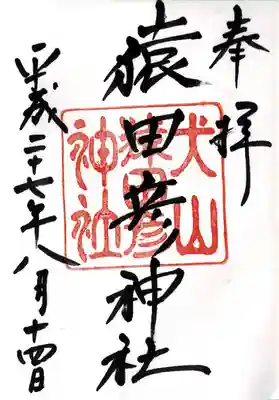 奉拝
猿田彦神社
平成二十七年八月十四日
犬山
猿田彦
神社